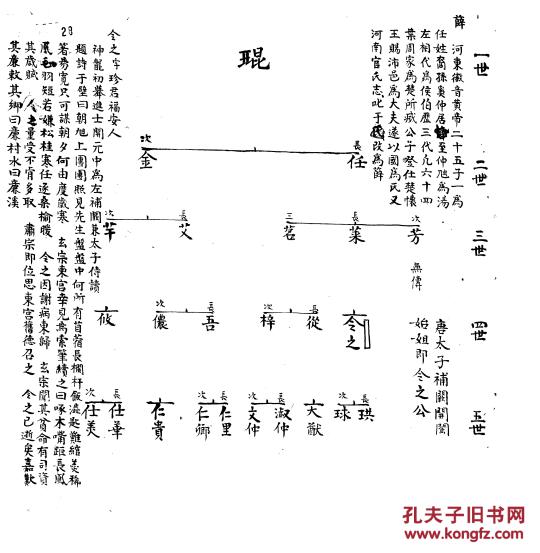 一世
二世
三世
四世
五世
薛 河東徽音黃帝二十五子一為
任姓裔孫奚仲居薛至仲虺為湯
左相代為侯伯歷三代凡六十四
葉周家為楚所滅公子登仕楚懷
王賜沛邑為大夫遂以國為氏又
河南官氏志叱干氏改為薛
琨
長 任
次 金
次 芳 無傳
長 萊
三 茗
長 艾
次 芊
唐太子補闕閩
始姐即令之公
令之
長 從
次 梓
長 吾
次 儂
攸
長 珙
次 球
大猷
長 淑仲
次 文仲
長 仁里
次 仁卿
仁貴
長 仕華
次 仕美
令之字珍君福安人
神龍初舉進士開元中為左補闕兼太子侍讀
題詩于壁曰朝旭上團團照見先生盤盤中何所有苜蓿長欄杆飯澁匙難綰羹稀
箸易寬只可謀朝夕何由度歲寒 玄宗東宮幸見為索筆續之曰啄木嘴距長鳳
凰毛羽短若嫌松桂寒任逐桑榆暖 令之因謝病東歸 玄宗聞其貧命有司資
其歲賦 令之量受不肯多取 肅宗即位思東宮舊德召之 令之已逝矣嘉歎
其廉敕其鄉曰廉村水曰廉溪
28
孔夫子旧书网
www.kongfz.com